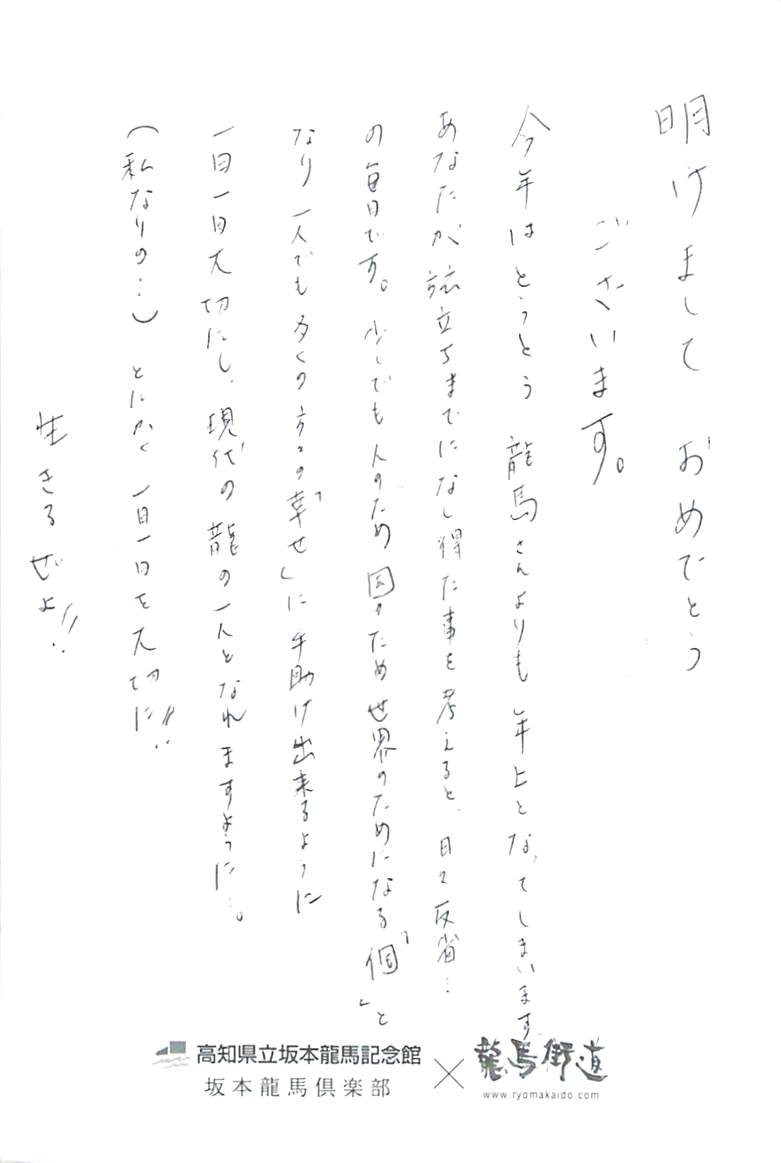 明けまして おめでとう
ございます。
今年は とうとう 龍馬さんよりも 年上となってしまいます
あなたが 旅立ちまでになし得た事を考えると、日々反省…
の毎日です。少しでも 人のため 国のため 世界のためになる「個」と
なり 一人でも 多くの方々の「幸せ」に 手助け出来るように
一日一日大切にし、現代の龍の一人となれますように…。
（私なりの…） とにかく 一日一日を大切に!!
生きるぜよ!!
高知県立坂本龍馬記念館
坂本龍馬倶楽部
×
龍馬街道
www.ryomakaido.com